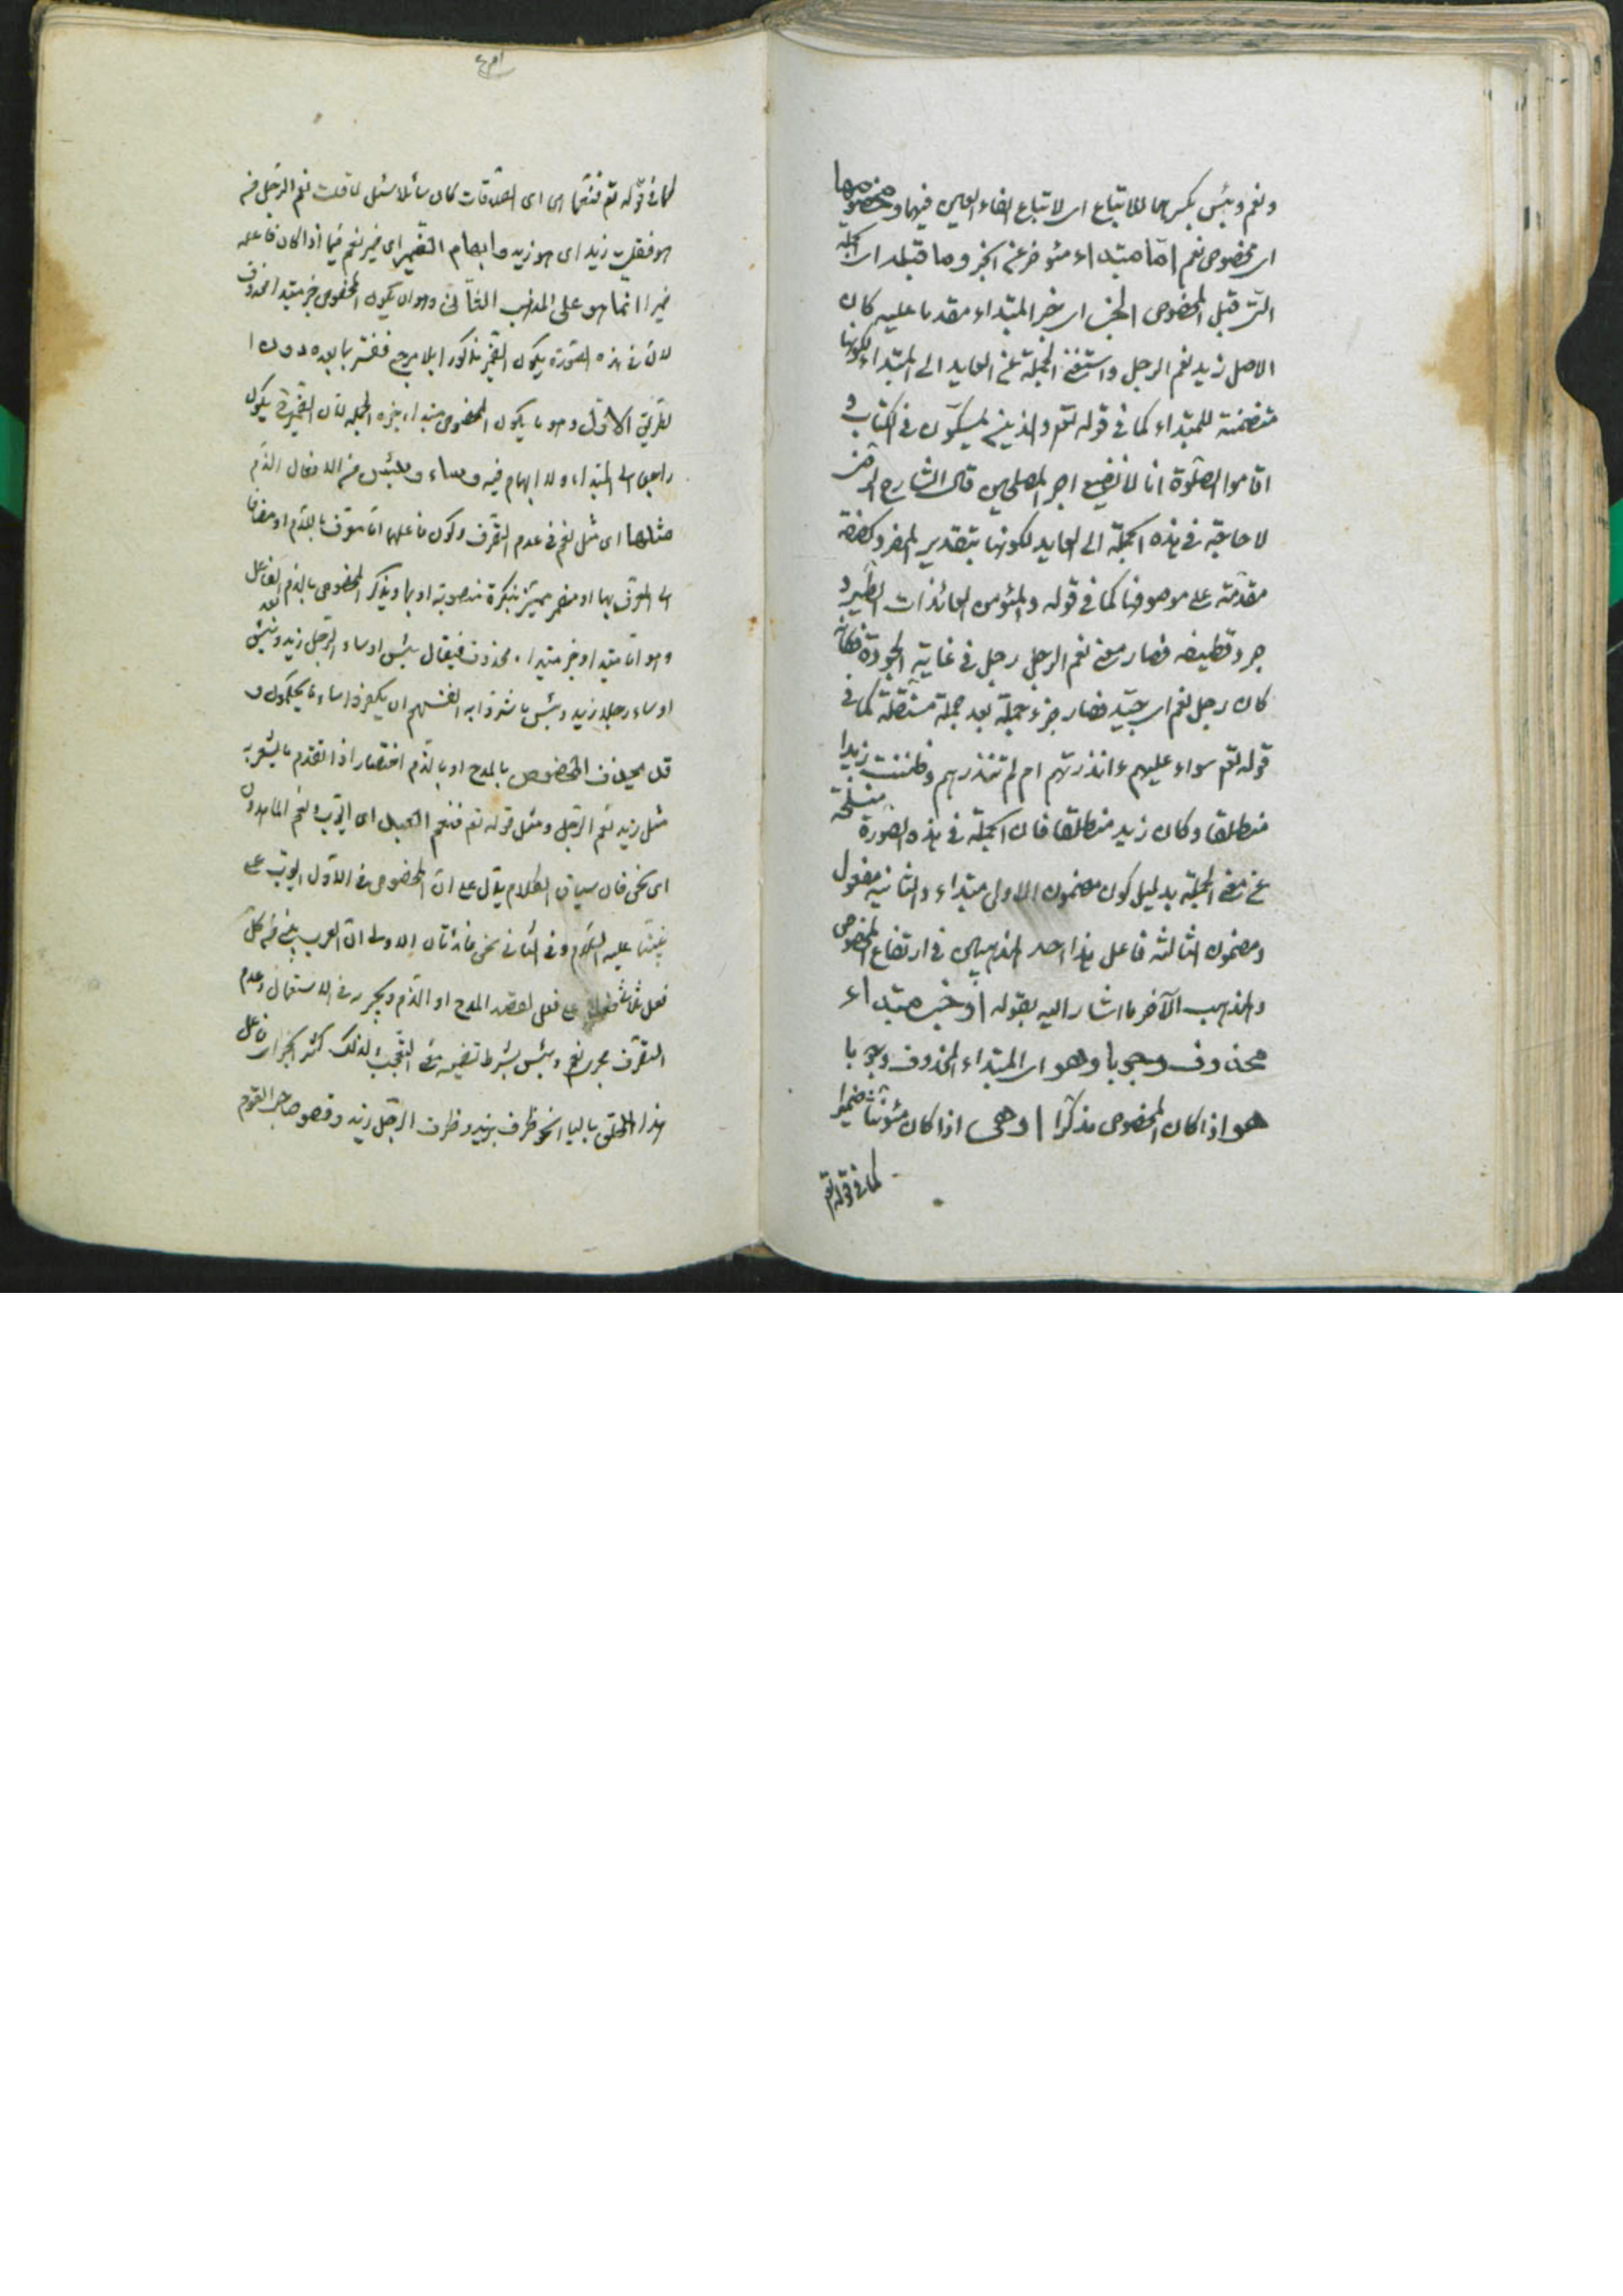 ونعم وبئس بكسرهما للاتباع اى لاتباع الفاء العين فيهما ومخصوصها
اى مخصوص نعم اما مبتداء مئوخر عن الخبر وما قبله اى الجملة
التى قبل المخصوص الخبر اى خبر المبتداء مقدما عليه كان
الاصل زيد نعم الرجل واستغنى الجملة عن العايد الى المبتداء لكونها
متضمنة للمبتداء كما فى قوله تعم والذين يمسّكون فى الكتاب و
اقاموا الصلوة انا لا نضيع اجر المصلحين قال الشارح الرضى
لا حاجة فى هذه الجملة الى العايد لكونها بتقدير المفرد كصفة
مقدّمة على موصوفها كما فى قوله والمئومن العائذات الطير و
جرد قطيفه فصار معنى نعم الرجل رجل فى غاية الجودة فكانّه
كان رجل نعم اى جيّد فصار جزء جملة بعد جملة مستقلة كما فى
قوله تعم سواء عليهم ءانذرتهم ام لم تنذرهم وظننت زيدا
منطلقا وكان زيد منطلقا فان الجملة فى هذه الصورة منسلخة
عن معنى الجملة بدليل كون مضمون الاولى مبتداء والثانية مفعول
ومضمون الثالثه فاعل هذا احد المذهبين فى ارتفاع المخصوص
والمذهب الآخر ما اشار اليه بقوله او خبر مبتداء
محذوف وجوبا وهو اى المبتداء المحذوف وجوبا
هو اذا كان المخصوص مذكّرا او هى اذا كان مئونثا ضميرا
كما فى قوله تعم
كما فى قوله تعم فنعمّا هى اى الصّدقات كان سائلا سئل لما قلت نعم الرّجل من
هو فقلت زيد اى هو زيد وابهام الضّمير اى ضمير نعم فيما اذا كان فاعله
ضميرا انما هو على المذهب الثّانى وهو ان يكون المخصوص خبر مبتداء محذوف
لانّ فى هذه الصّورة يكون الضّمير مذكورا بلا مرجع ففسّر بما بعده دون ا
لطّريق الاوّل وهو ما يكون المخصوص مبتداء خبره الجملة لانّ الضّمير ح يكون
راجعا الى المبتداء ولا ابهام فيه وساء وبئس من الافعال الذّم
مثلها اى مثل نعم فى عدم التّصّرف وكون فاعلهما امّا معرّف باللّام او مضافا
الى المعرّف بها او مضمر مميّز بنكرة منصوبة او بما ويذكر المخصوص بالذم بعد الفاعل
وهو امّا مبتداء او خبر مبتداء محذوف فيقال بئس او ساء الرّجل زيد وبئس
او ساء رجلا زيد وبئس ما شروا به انفسهم ان يكفروا وساء ما يحكمون و
قد يحذف المخصوص بالمدح او بالذّم اختصارا اذا تقدم ما يشعر به
مثل زيد نعم الرّجل ومثل قوله تعم فنعم العبد اى ايّوب ونعم الماهدون
اى نحن فان سياق الكلام يدّل على انّ المخصوص فى الاوّل ايّوب على
نبيّنا عليه السّلام وفى الثّانى نحن فائدتان الاولى انّ العرب يبنى من كلّ
فعل ثلاثى على فعل لقصد المدح او الذّم ويجريه فى الاستعمال وعدم
التّصّرف مجرى نعم وبئس بشرط تضمينه معنى التّعجّب ولذلك كثر انجرار فاعل
هذا الملحق بالباء نحو ظرف بزيد وظرف الرّجل زيد وقصو صاحب القوم